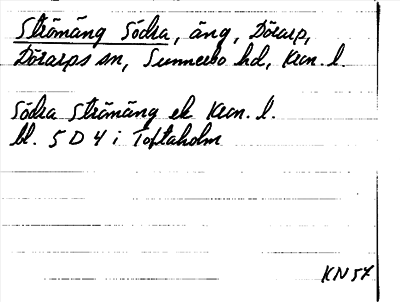 Strömäng Södra, äng, Dörarp,
Dörarps sn, Sunnerbo hd, Kron. l.
Södra Strömäng ek Kron. l.
bl. 5 D 4 i Toftaholm
KN 57